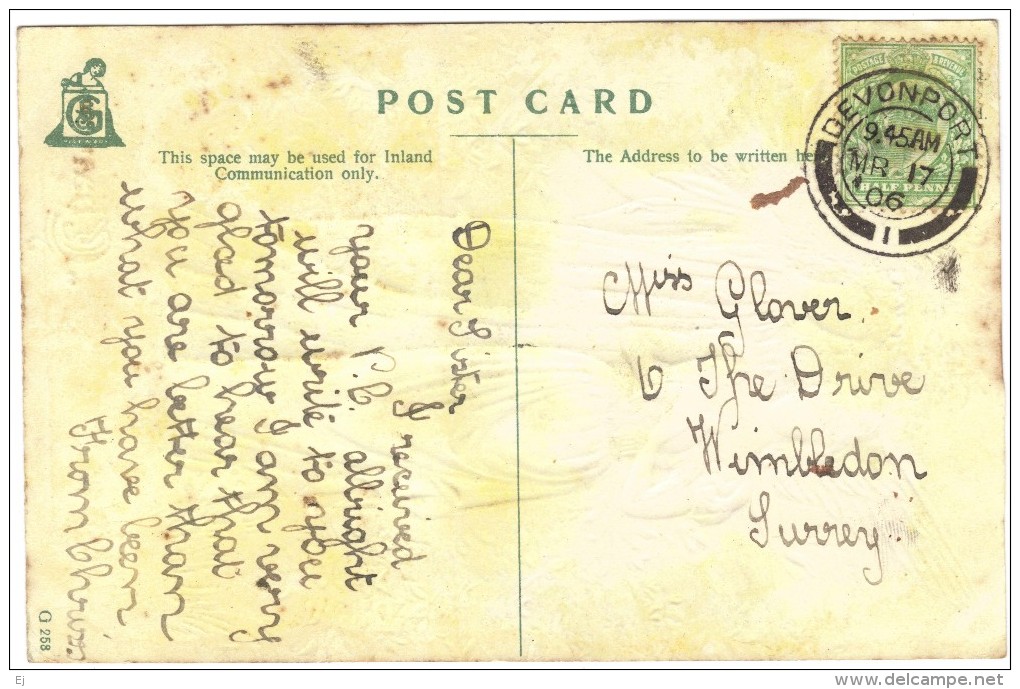 POST CARD
This space may be used for Inland
Communication only.
The Address to be written here
POSTAGE & REVENUE
HALF PENNY
DEVONPORT
9.45AM
MR 17
06
1
Dear Sister
I recived
your P.C. allright
will write to you
tomorrow I am very
glad to hear that
you are better than
what you have been
From Chriss.
Miss Glover,
6 The Drive
Wimbledon
Surrey
G 258
Ej
delcampe.net